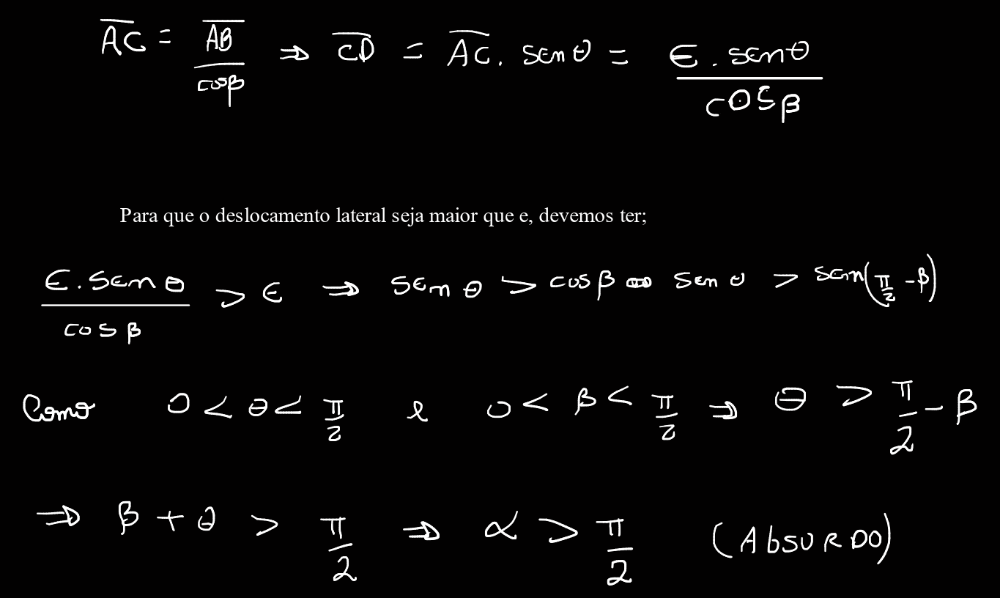 A̅C̅ = A̅B̅/cosβ ⇒ C̅D̅ = A̅C̅ . senθ = E . senθ/cosβ
Para que o deslocamento lateral seja maior que e, devemos ter;
E . senθ/cosβ > E ⇒ senθ > cosβ ⇔ senθ > sen(π/2 - β)
Como 0 < θ < π/2 e 0 < β < π/2 ⇒ θ > π/2 - β
⇒ β + θ > π/2 ⇒ α > π/2 (AbSURDO)